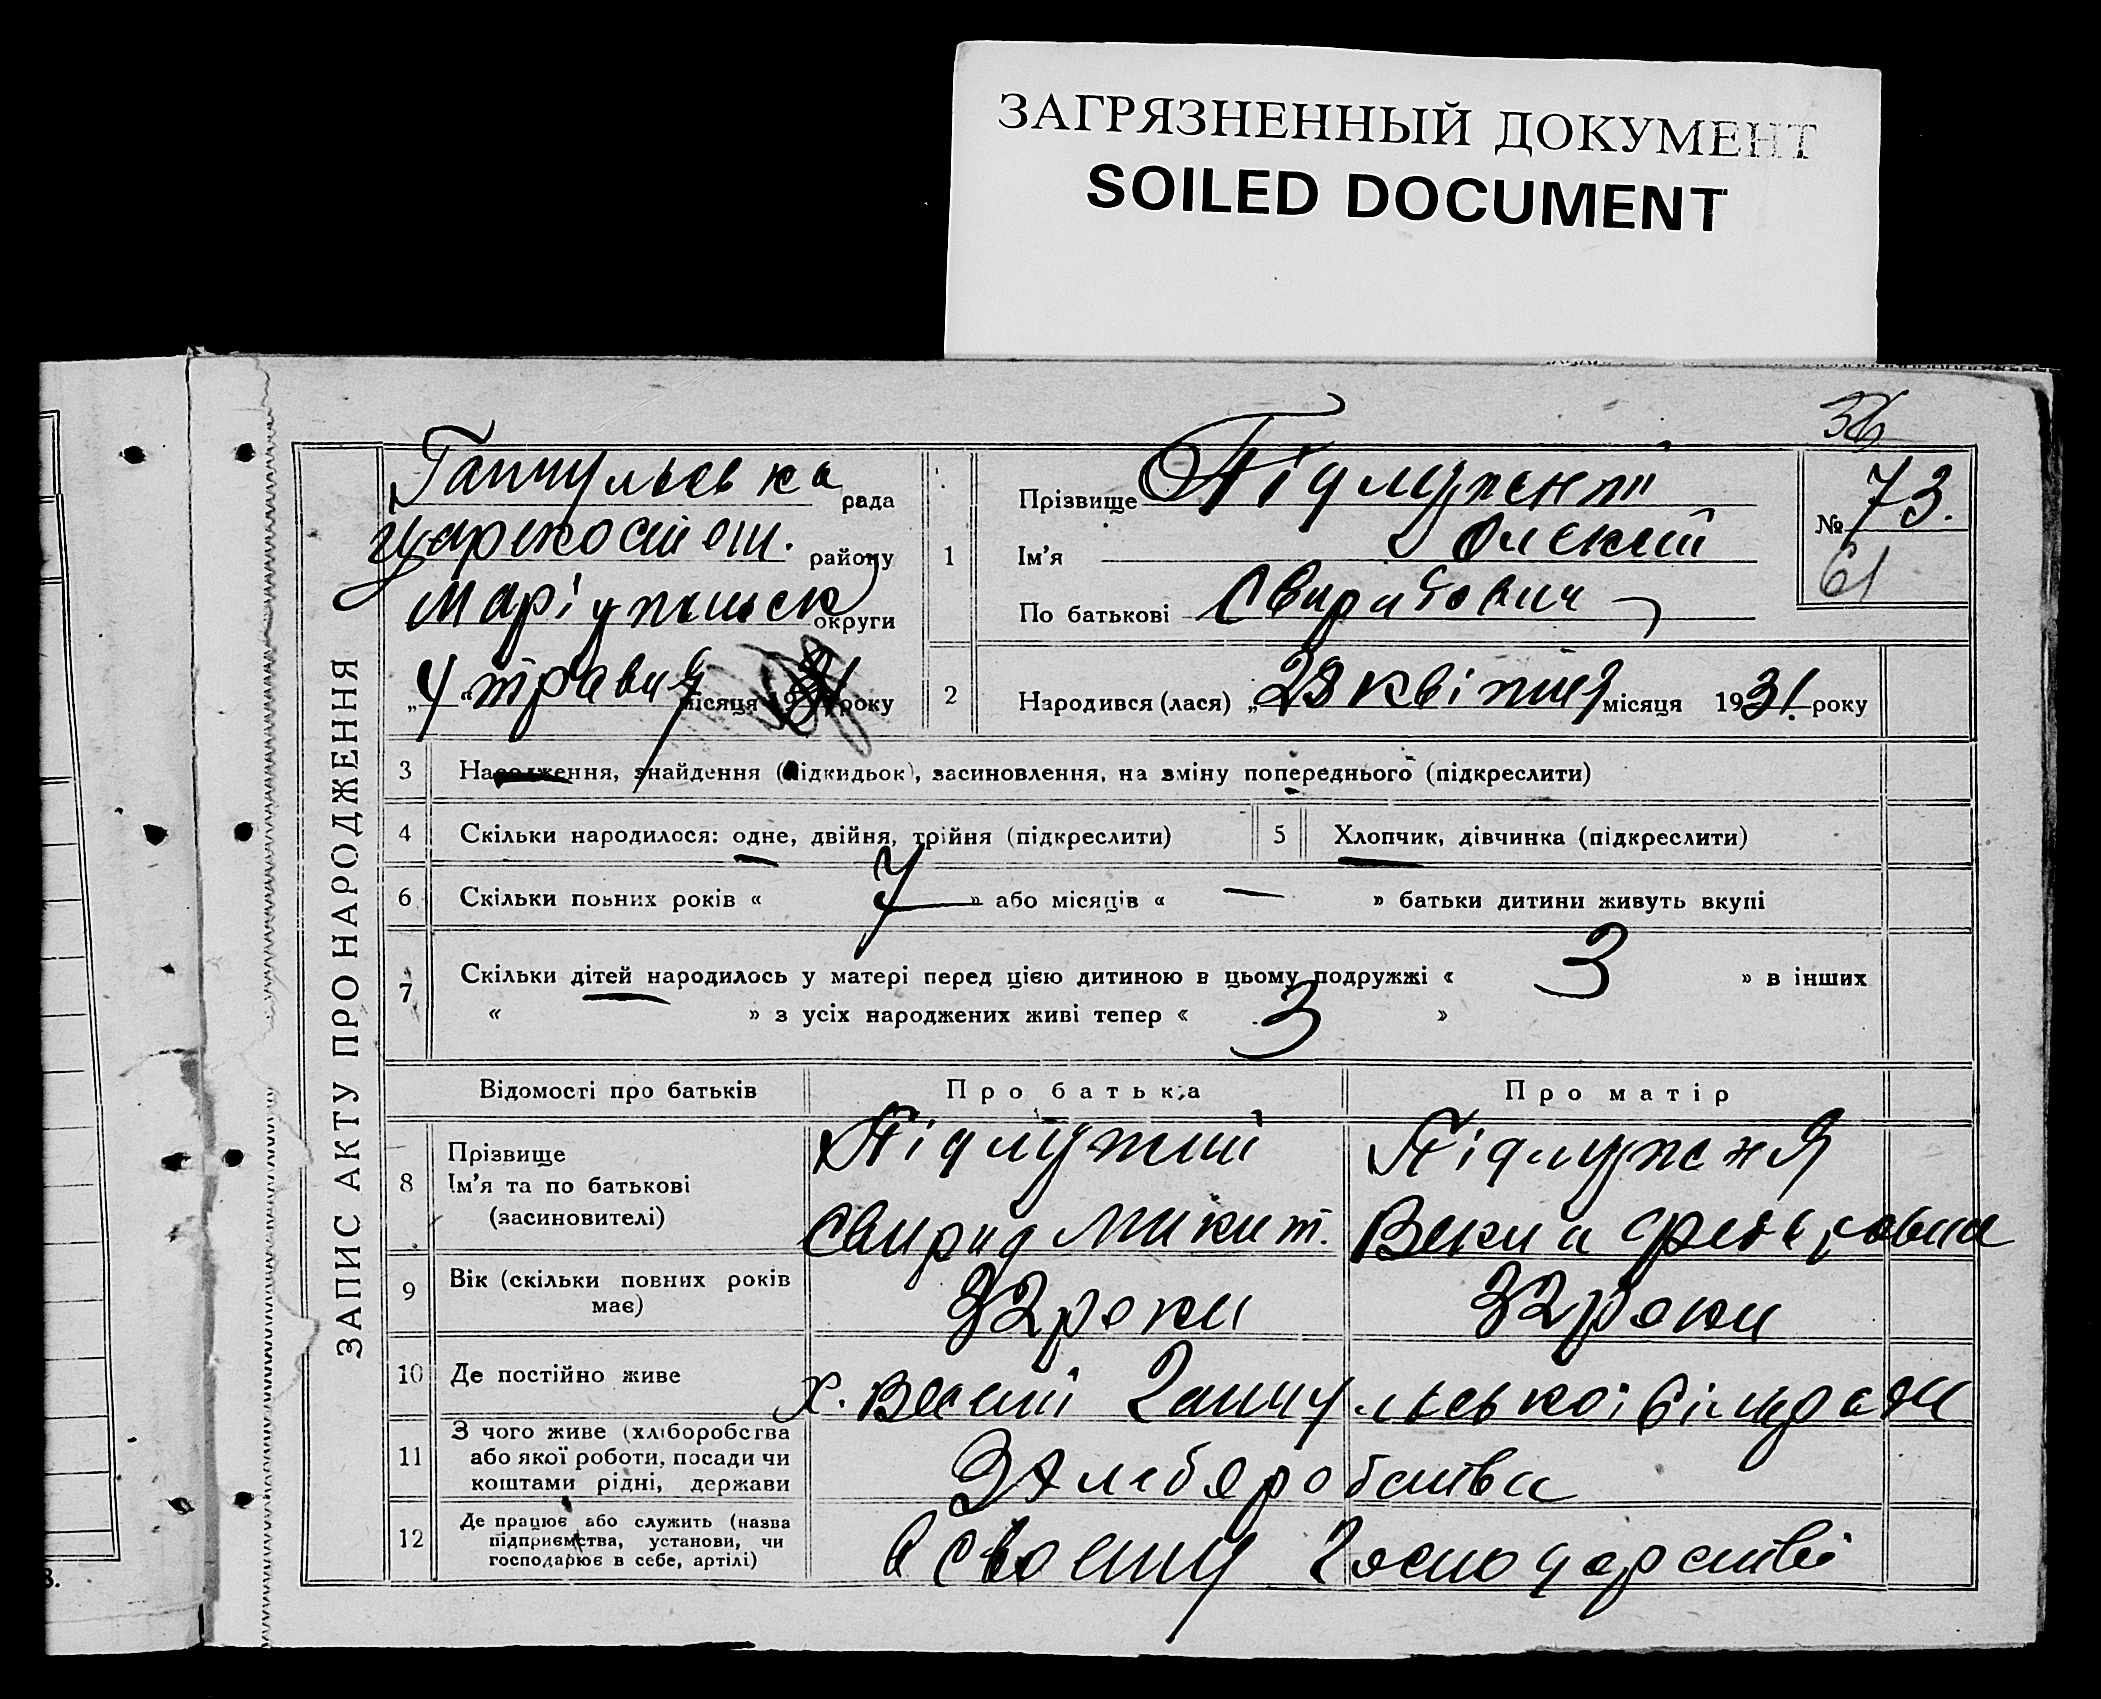 ЗАГРЯЗНЕННЫЙ ДОКУМЕНТ
SOILED DOCUMENT
36
ЗАПИС АКТУ ПРО НАРОДЖЕННЯ
рада
району
Маріупільск округи
„4“ травня місяця 1931 року
1
Прізвище
Ім'я Олексій
По батькові Свиридович
№ 73.
61
2 Народився (лася) „28 квітня місяця 1931. року
3 Народження, знайдення (підкидьок), засиновлення, на зміну попереднього (підкреслити)
4 Скільки народилося: одне, двійня, трійня (підкреслити)
5 Хлопчик, дівчинка (підкреслити)
6 Скільки повних років « 7 » або місяців « — » батьки дитини живуть вкупі
7 Скільки дітей народилось у матері перед цією дитиною в цьому подружжі « 3 » в інших
« » з усіх народжених живі тепер « 3 »
Відомості про батьків Про батька Про матір
8 Прізвище
Ім'я та по батькові
(засиновителі)
Підлужний
Свирид Микит.
9 Вік (скільки повних років
має)
32 роки 32 роки
10 Де постійно живе
х. Веселий
11 З чого живе (хліборобства
або якої роботи, посади чи
коштами рідні, держави
З хлеборобства
12 Де працює або служить (назва
підприємства, установи, чи
господарює в себе, артілі)
в своему господарстві
8.